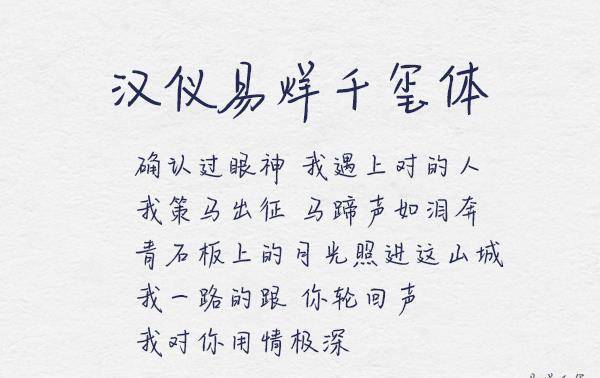 汉仪易烊千玺体
确认过眼神 我遇上对的人
我策马出征 马蹄声如泪奔
青石板上的月光照进这山城
我一路的跟 你轮回声
我对你用情极深